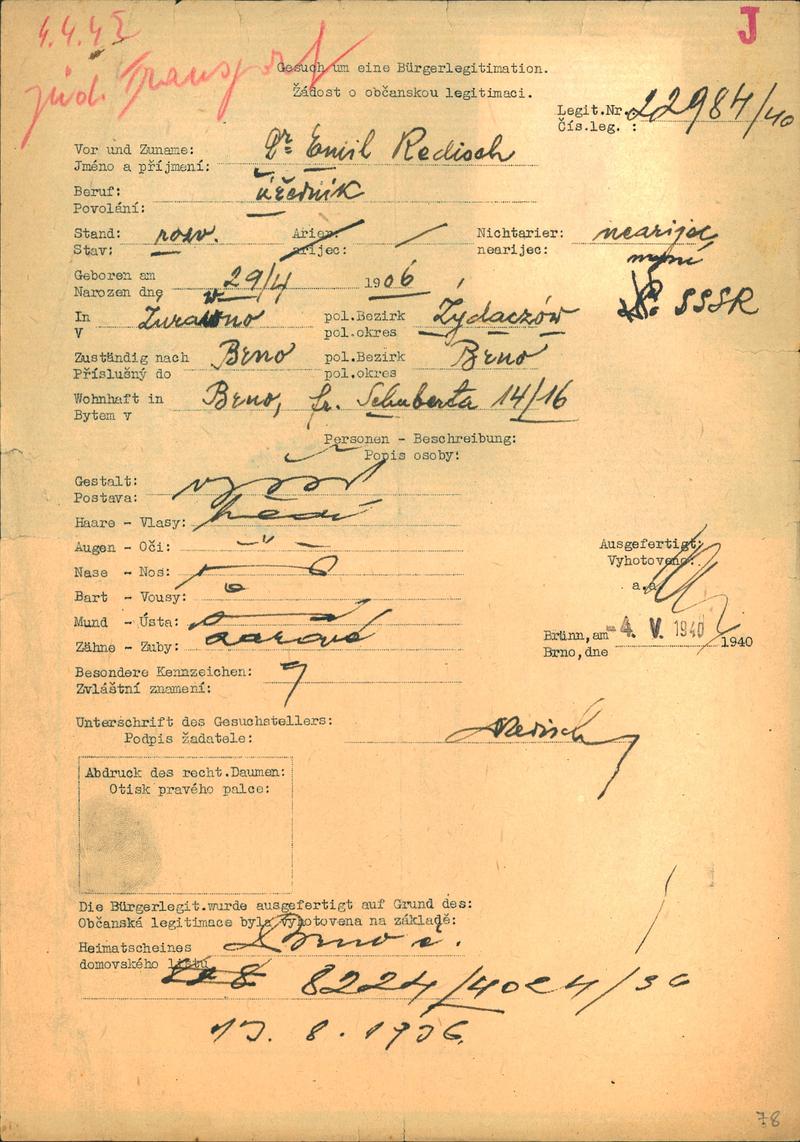 4.4.42
J
jüd. Transport
Gesuch um eine Bürgerlegitimation.
Žádost o občanskou legitimaci.
Legit.Nr. 22984/40
Čís.leg. :
Vor und Zuname: Dr Emil Redisch
Jméno a příjmení:
Beruf: úředník
Povolání:
Stand: rozv. Arier: Nichtarier: nearijec
Stav: arijec: nearijec:
nyní
SSSR
Geboren am 29/4 1906
Narozen dne
In Żurawno pol.Bezirk Żydaczów
V pol.okres
Zuständig nach Brno pol.Bezirk Brno
Příslušný do pol.okres
Wohnhaft in Brno, fr. Schuberta 14/16
Bytem v
Personen - Beschreibung:
Popis osoby:
Gestalt: vyšší
Postava:
Haare - Vlasy: hnědé
Augen - Oči: - " -
Nase - Nos:
Bart - Vousy:
Mund - Ústa:
Zähne - Zuby: zdravé
Ausgefertigt:
Vyhotoveno:
a.a.
Brünn,am -4. V. 1940 1940
Brno,dne
Besondere Kennzeichen:
Zvláštní znamení:
Unterschrift des Gesuchstellers: Redisch
Podpis žadatele:
Abdruck des recht.Daumen:
Otisk pravého palce:
Die Bürgerlegit.wurde ausgefertigt auf Grund des:
Občanská legitimace byla vyhotovena na základě:
Heimatscheines Brno č.
domovského listu
8224/4024/36
13. 8. 1936
78